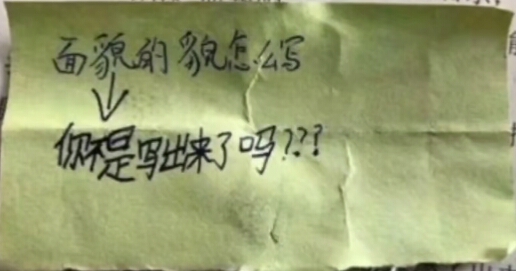 面貌的貌怎么写
你不是写出来了吗???